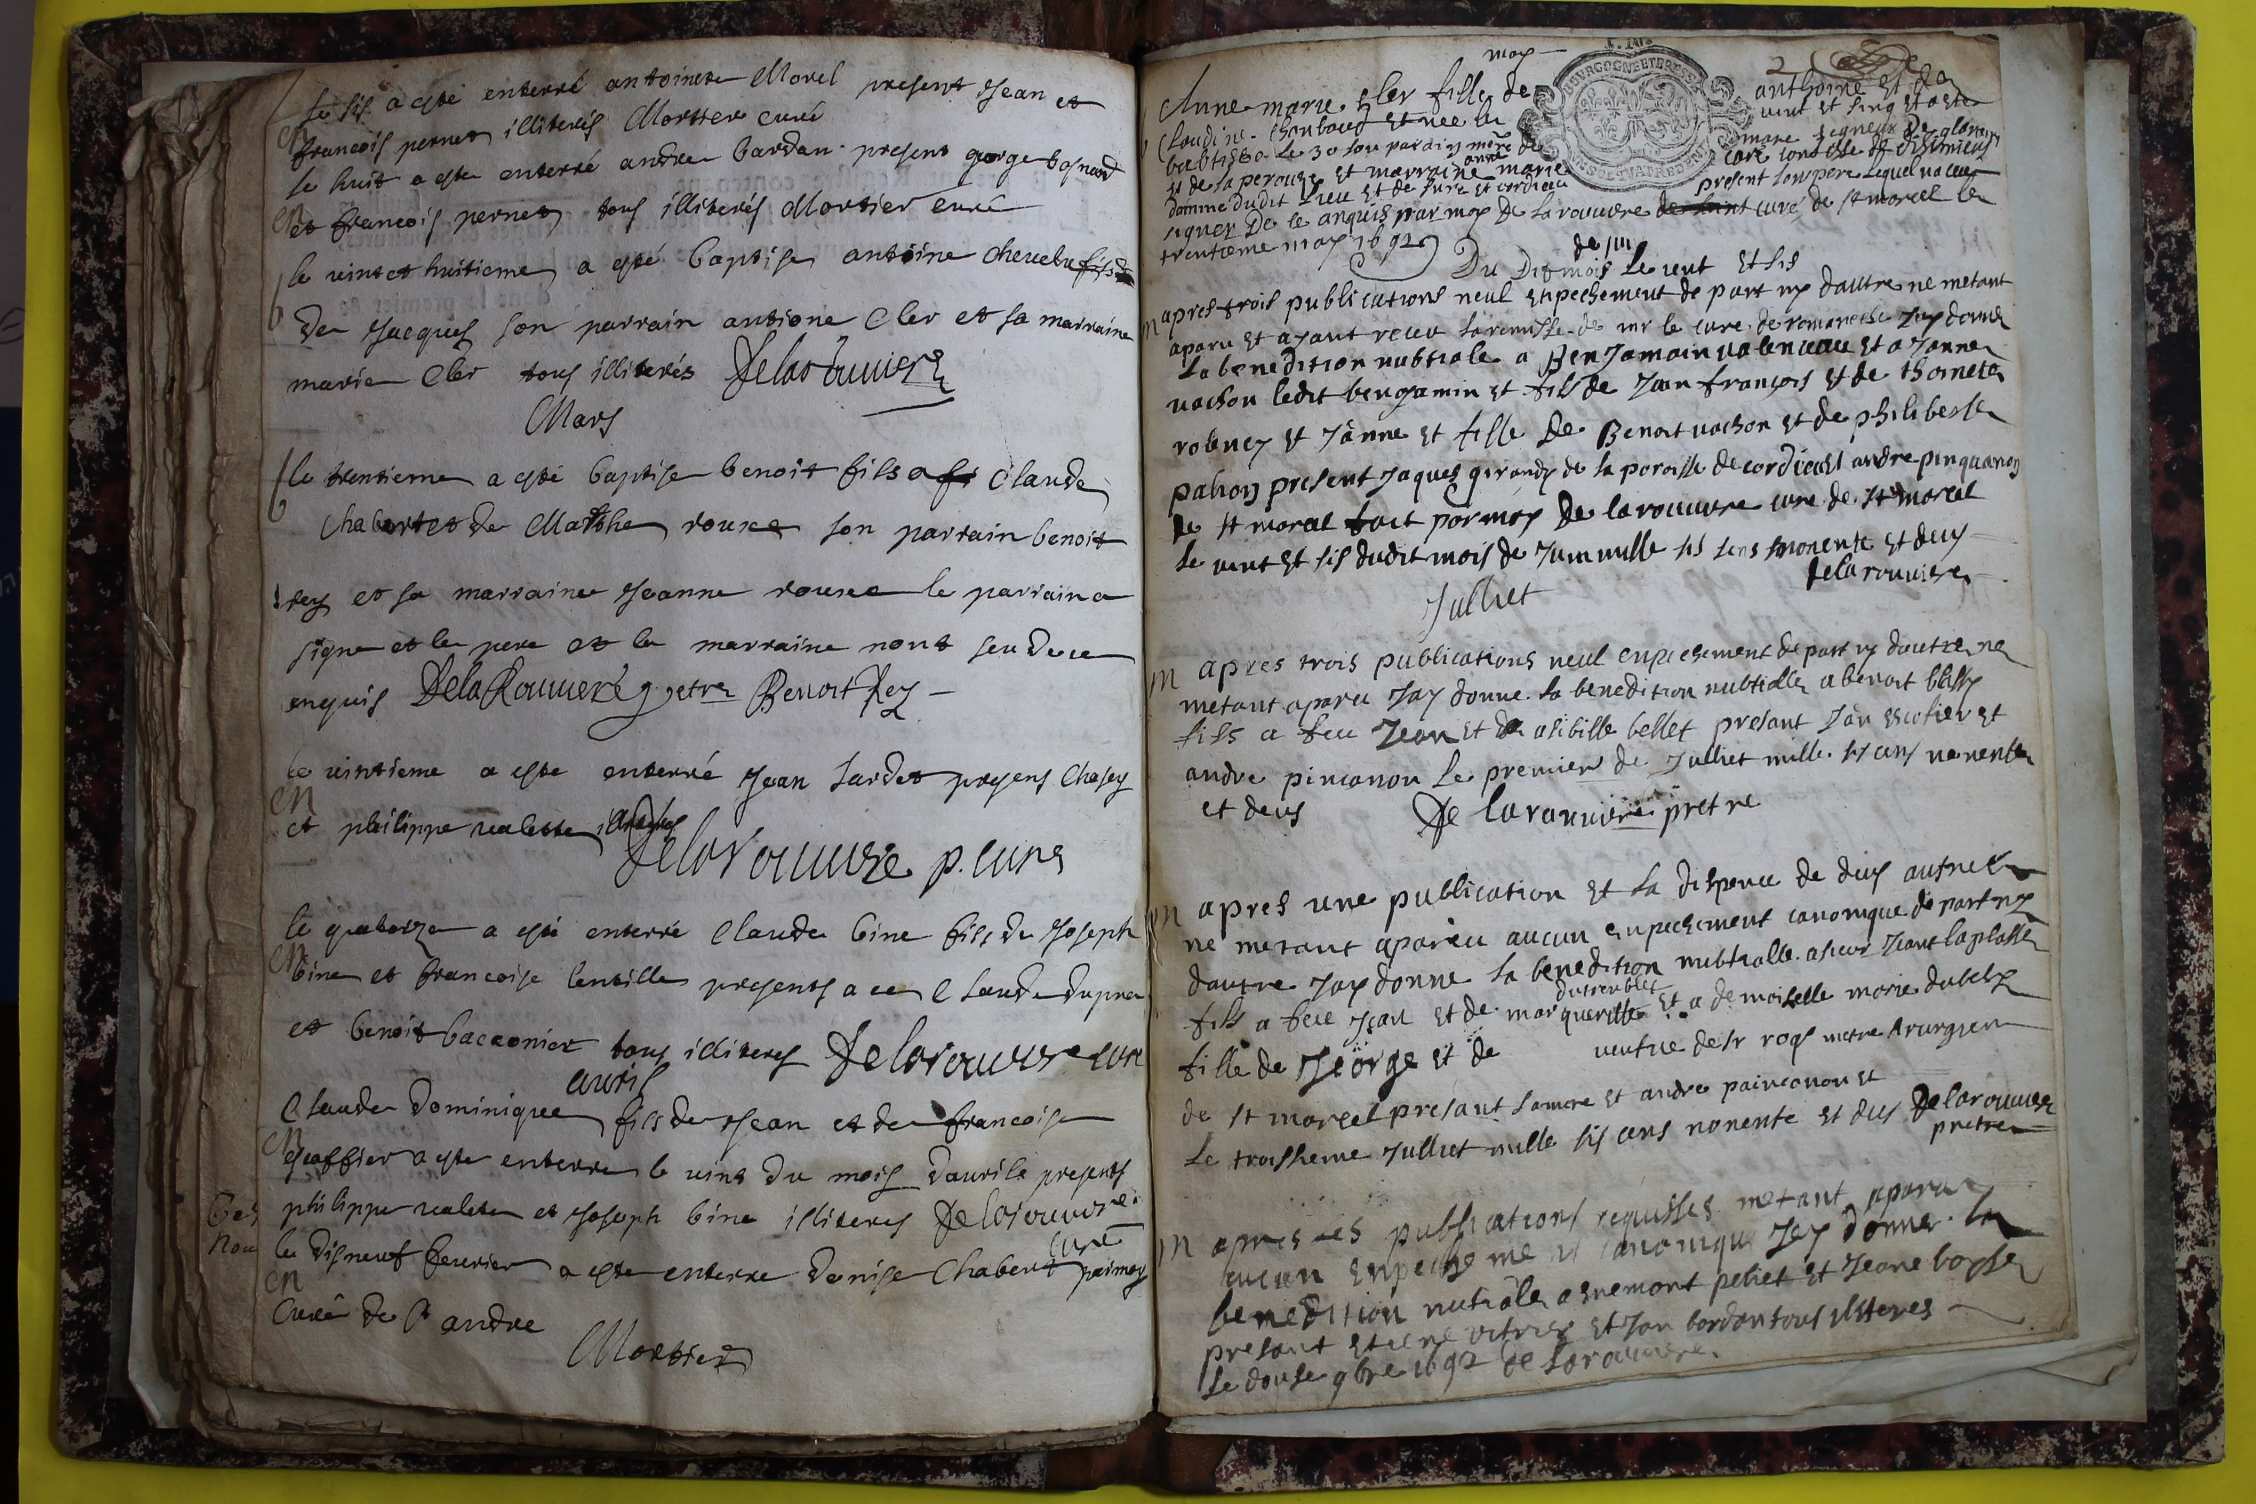 Le sis a esté enterré antoinete Morel present Jean et
en
francois pernet illiterés Mortier curé
le huit a este enterré andre bardan present george
en
et francois pernet tous illiterés Mortier curé
b
le vint et huitieme a esté baptise antoine chevelu fils
de Jacques son parrain antione Cler et sa marraine
marie Cler tous illiterés Delarouviere
Mars
b
le trentieme a esté baptise benoit fils a Claude
Chabert et de Marthe rouse son parrain benoit
rey et sa marraine Jeanne rouse le parrain a
signe et le pere et la marraine nont seu de ce
enquis Delarouvere pretre Benoit Rey
le vintieme a este enterré Jean Sardet presens
en
et philippe valette illiterés
Delarouviere p. curé
le quatorze a esté enterré Claude bine fils de Joseph
en
bine et francoise lentille presents a ce Claude dupre
et benoit bacconier tous illiteres Delarouviere curé
avril
Claude Dominique fils de Jean et de francoise
en
graffier a este enterre le vint du mois davrile presents
philippe valete et Joseph bine illiteres Delarouviere
curé
le disneuf fevrier a este enterre denise Chabert par moy
en
Curé de St andre
Mortier
may
Anne marie Cler fille de anthoine et de
Claudine et nee le vint et sinq et a este
babtisee le 30 son parain
et de la perouze et marraine anne marie
damme dudit lieu et de present son pere lequel na seu
signer De ce anquis par moy De larouviere curé de st marcel le
trentieme may 1692
Du Dit mois de juin Le vent et sis
m
apres trois publications neul enpechement de part ny dautre ne metant
aparu et ayant receu la remisse de mr le cure de romaneche Jay donne
La benedition nubtiale a BenJamain valencau et a Janne
vachon ledit bengamin et fils de Jean françois et de thoinete
robney et Jânne et fille De Benoit vachon et de philiberte
pahon present Jaques girandy de la paroisse de cordieu et andre pinquanon
de st marcel fait par moy De larouviere cure de st marcel
Le vint et sis dudit mois de Juin mille sis sens nonente et deus
Delarouviere
Julliet
m
apres trois publications neul enpechement de part ny dautre ne
metant aparu Jay donne la benedition nubtialle a benoit blasy
fils a feu Jean et de asibille bellet present Jan escofier et
andre pinconon Le premier de Julliet mille sis cens nonente
et deus De larouviere pretre
m
apres une publication et la dispence de deus autres
ne metant apareu aucun enpechement canonique de part ny
dautre Jay donne la benedition nubtialle a sieur Jean laplasse
fils a feu Jean et de marguerite dutremblet et a demoiselle marie dubest
fille de George et de veufue de sr rogs metre sirurgien
de st marcel présant et andre painconon et
Le troisieme Julliet mille sis cens nonente et deus Delarouviere
pretre
m
apres les publications requisses metant aparu
aucun enpecheme nt canonique Jay donne la
benedition nutiale a enemont peliet et Jeane bosse
presant etiene vitrier et Jan bardon tous illiteres
Le douse 9bre 1692 De larouviere